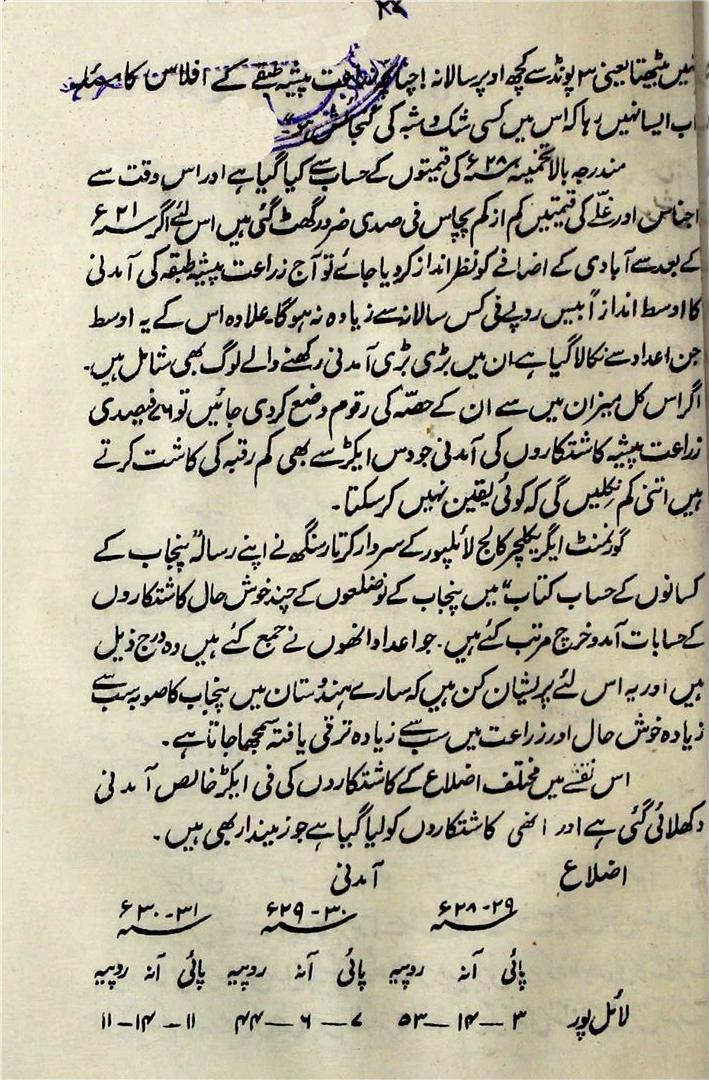 نہیں بیٹھتا یعنی ۳ پونڈ سے کچھ اوپر سالانہ! چنانچہ زراعت پیشہ طبقے کے افلاس کا مسئلہ
اب ایسا نہیں رہا کہ اس میں کسی شک و شبہ کی گنجائش ہو"
مندرجہ بالا تخمینہ ۲۸ء کی قیمتوں کے حساب سے کیا گیا ہے اور اس وقت سے
اجناس اور غلّے کی قیمتیں کم از کم پچاس فی صدی ضرور گھٹ گئی ہیں اس لئے اگر ۲۱ء
کے بعد سے آبادی کے اضافے کو نظر انداز کر دیا جائے تو آج زراعت پیشہ طبقہ کی آمدنی
کا اوسط اندازاً بیس روپے فی کس سالانہ سے زیادہ نہ ہوگا۔ علاوہ اس کے یہ اوسط
جن اعداد سے نکالا گیا ہے ان میں بڑی بڑی آمدنی رکھنے والے لوگ بھی شامل ہیں۔
اگر اس کل میزان میں سے ان کے حصّہ کی رقوم وضع کر دی جائیں تو ۷۶ فیصدی
زراعت پیشہ کاشتکاروں کی آمدنی جو دس ایکڑ سے بھی کم رقبہ کی کاشت کرتے
ہیں اتنی کم نکلیں گی کہ کوئی یقین نہیں کر سکتا۔
گورنمنٹ ایگریکلچر کالج لائلپور کے سردار کرتار سنگھ نے اپنے رسالہ "پنجاب کے
کسانوں کے حساب کتاب" میں پنجاب کے نو ضلعوں کے چند خوش حال کاشتکاروں
کے حسابات آمد و خرچ مرتب کئے ہیں۔ جو اعداد انھوں نے جمع کئے ہیں وہ درج ذیل
ہیں اور یہ اس لئے پریشان کن ہیں کہ سارے ہندوستان میں پنجاب کا صوبہ سب سے
زیادہ خوش حال اور زراعت میں سب سے زیادہ ترقی یافتہ سمجھا جاتا ہے۔
اس نقشے میں مختلف اضلاع کے کاشتکاروں کی فی ایکڑ خالص آمدنی
دکھلائی گئی ہے اور انھی کاشتکاروں کو لیا گیا ہے جو زمیندار بھی ہیں۔
اضلاع آمدنی
۲۸-۲۹ء ۲۹-۳۰ء ۳۰-۳۱ء
پائی آنہ روپیہ پائی آنہ روپیہ پائی آنہ روپیہ
لائل پور ۳—۱۴—۵۳ ۷—۶—۴۴ ۱۱—۱۴—۱۱